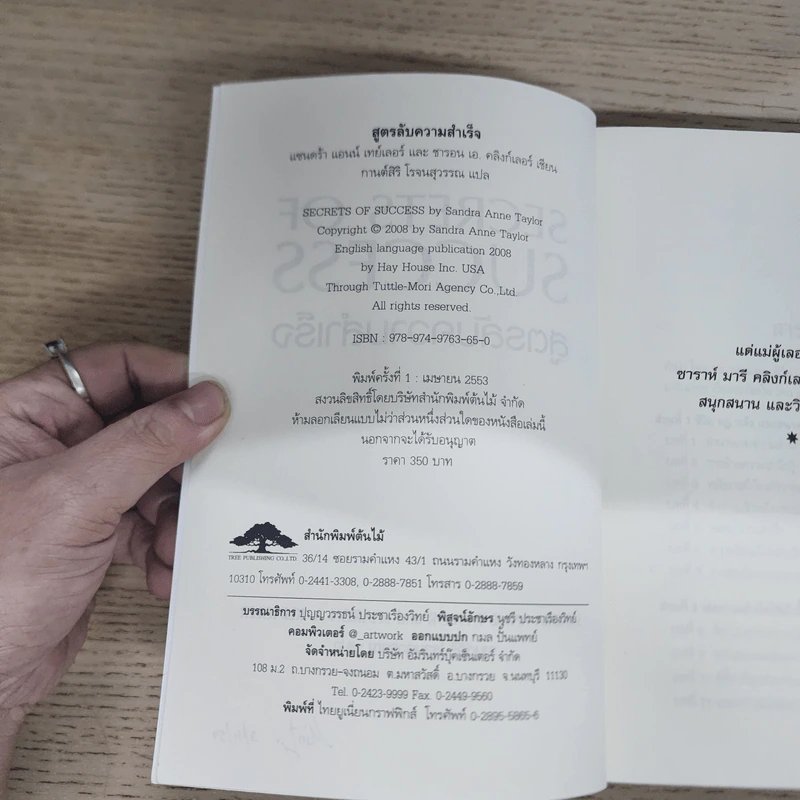 สูตรลับความสำเร็จ
แซนดร้า แอนน์ เทย์เลอร์ และ ชารอน เอ. คลิงก์เลอร์ เขียน
กานต์สิริ โรจนสุวรรณ แปล
SECRETS OF SUCCESS by Sandra Anne Taylor
Copyright © 2008 by Sandra Anne Taylor
English language publication 2008
by Hay House Inc. USA
Through Tuttle-Mori Agency Co.,Ltd.
All rights reserved.
ISBN : 978-974-9763-65-0
พิมพ์ครั้งที่ 1 : เมษายน 2553
สงวนลิขสิทธิ์โดยบริษัทสำนักพิมพ์ต้นไม้ จำกัด
ห้ามลอกเลียนแบบไม่ว่าส่วนหนึ่งส่วนใดของหนังสือเล่มนี้
นอกจากจะได้รับอนุญาต
ราคา 350 บาท
สำนักพิมพ์ต้นไม้
TREE PUBLISHING CO.,LTD. 36/14 ซอยรามคำแหง 43/1 ถนนรามคำแหง วังทองหลาง กรุงเทพฯ
10310 โทรศัพท์ 0-2441-3308, 0-2888-7851 โทรสาร 0-2888-7859
บรรณาธิการ ปุญญวรรธน์ ประชาเรืองวิทย์ พิสูจน์อักษร นุชรี ประชาเรืองวิทย์
คอมพิวเตอร์ @_artwork ออกแบบปก กมล ปั้นแพทย์
จัดจำหน่ายโดย บริษัท อัมรินทร์บุ๊คเซ็นเตอร์ จำกัด
108 ม.2 ถ.บางกรวย-จงถนอม ต.มหาสวัสดิ์ อ.บางกรวย จ.นนทบุรี 11130
Tel. 0-2423-9999 Fax. 0-2449-9560
พิมพ์ที่ ไทยยูเนี่ยนกราฟฟิกส์ โทรศัพท์ 0-2895-5865-6
แด่แม่ผู้เลอ
ซาราห์ มารี คลิงก์เล
สนุกสนาน และวิ